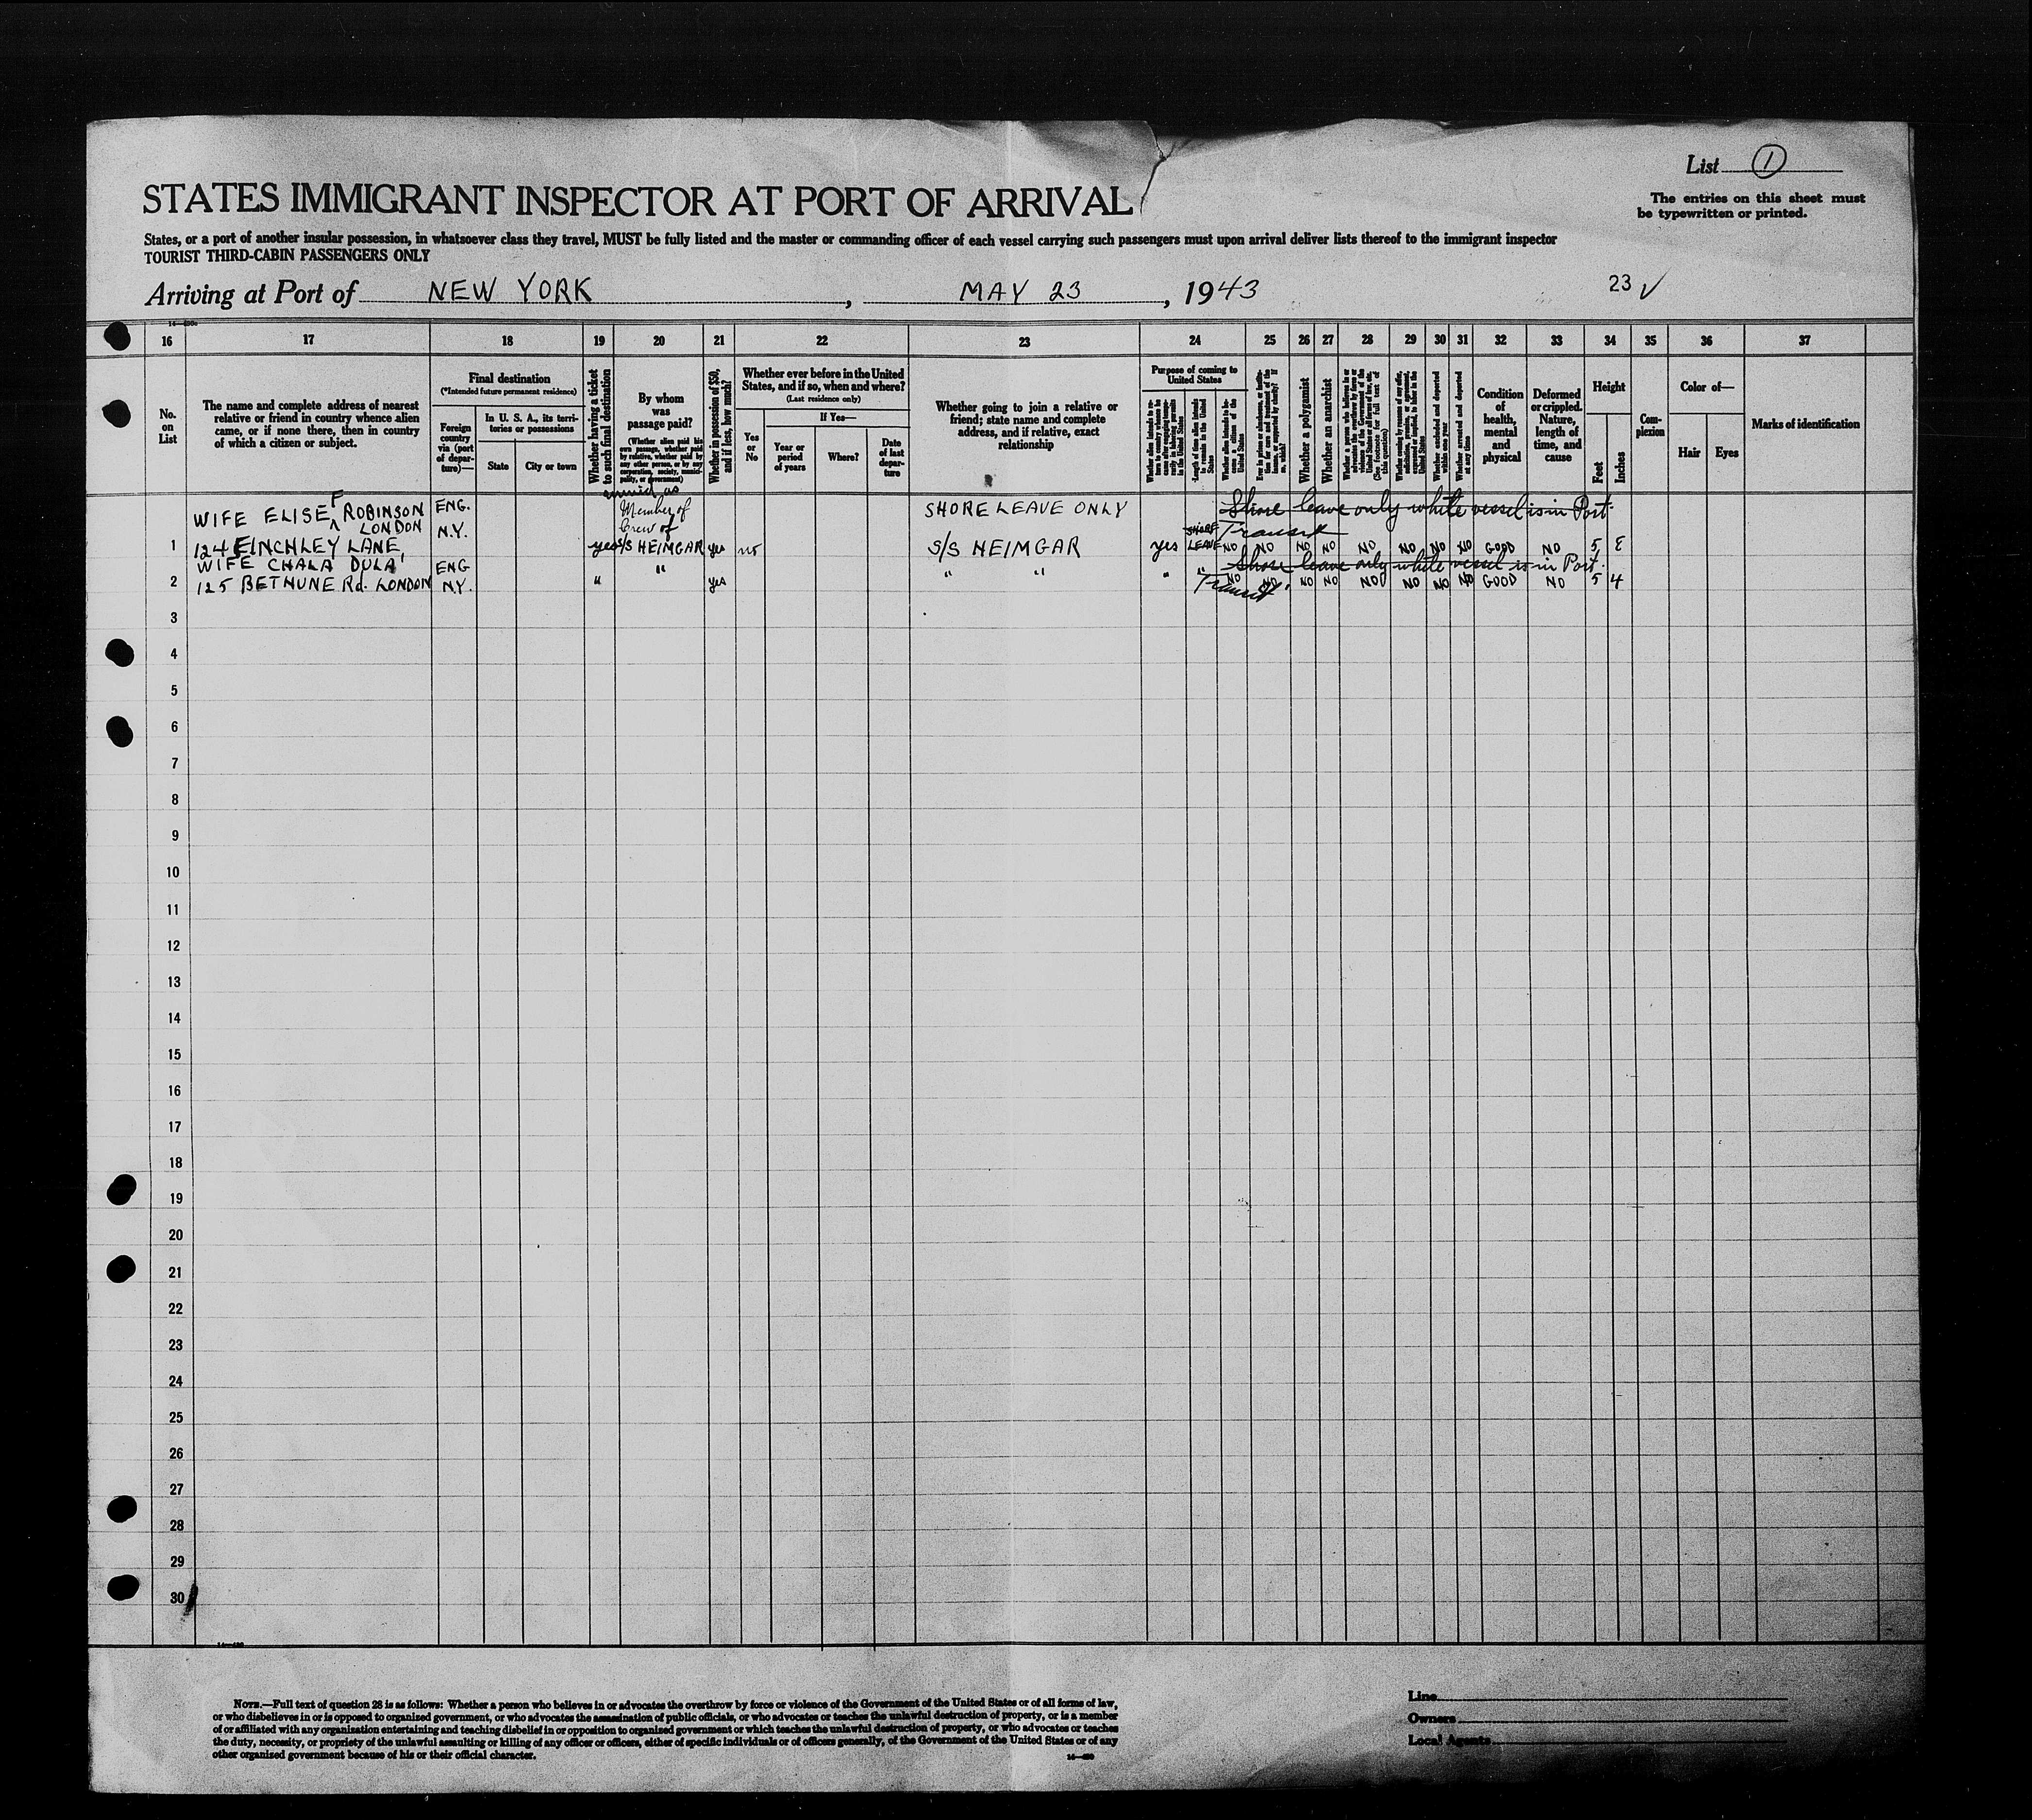 List ①
STATES IMMIGRANT INSPECTOR AT PORT OF ARRIVAL
The entries on this sheet must
be typewritten or printed.
States, or a port of another insular possession, in whatsoever class they travel, MUST be fully listed and the master or commanding officer of each vessel carrying such passengers must upon arrival deliver lists thereof to the immigrant inspector
TOURIST THIRD-CABIN PASSENGERS ONLY
Arriving at Port of NEW YORK, MAY 23, 1943
23 ✓
16 17 18 19 20 21 22 23 24 25 26 27 28 29 30 31 32 33 34 35 36 37
No.
on
List
The name and complete address of nearest
relative or friend in country whence alien
came, or if none there, then in country
of which a citizen or subject.
Final destination
(*Intended future permanent residence)
Foreign
country
via (port
of depar-
ture)—
In U. S. A., its terri-
tories or possessions
State
City or town
Whether having a ticket
to such final destination
By whom
was
passage paid?
(Whether alien paid his
own passage, whether paid
by relative, whether paid by
any other person, or by any
corporation, society, munici-
pality, or government)
Whether in possession of $50,
and if less, how much?
Whether ever before in the United
States, and if so, when and where?
(Last residence only)
Yes
or
No
If Yes—
Year or
period
of years
Where?
Date
of last
depar-
ture
Whether going to join a relative or
friend; state name and complete
address, and if relative, exact
relationship
Purpose of coming to
United States
Whether a polygamist
Whether an anarchist
Condition
of
health,
mental
and
physical
Deformed
or crippled.
Nature,
length of
time, and
cause
Height
Feet
Inches
Com-
plexion
Color of—
Hair
Eyes
Marks of identification
WIFE ELISE F ROBINSON ENG. Member of SHORE LEAVE ONLY Shore leave only while vessel is in Port.
LONDON N.Y. Crew of SHORE Transit
1 124 FINCHLEY LANE, yes S/S HEIMGAR yes no S/S HEIMGAR yes LEAVE NO NO NO NO NO NO NO NO GOOD NO 5 8
WIFE CHALA DULA ENG " " " " " Shore leave only while vessel is in Port.
2 125 BETHUNE Rd. LONDON N.Y. " yes Transit NO NO NO NO NO NO NO NO GOOD NO 5 4
3
4
5
6
7
8
9
10
11
12
13
14
15
16
17
18
19
20
21
22
23
24
25
26
27
28
29
30
NOTE.—Full text of question 28 is as follows: Whether a person who believes in or advocates the overthrow by force or violence of the Government of the United States or of all forms of law,
or who disbelieves in or is opposed to organized government, or who advocates the assassination of public officials, or who advocates or teaches the unlawful destruction of property, or is a member
of or affiliated with any organization entertaining and teaching disbelief in or opposition to organized government or which teaches the unlawful destruction of property, or who advocates or teaches
the duty, necessity, or propriety of the unlawful assaulting or killing of any officer or officers, either of specific individuals or of officers generally, of the Government of the United States or of any
other organised government because of his or their official character.
Line
Owners
Local Agents